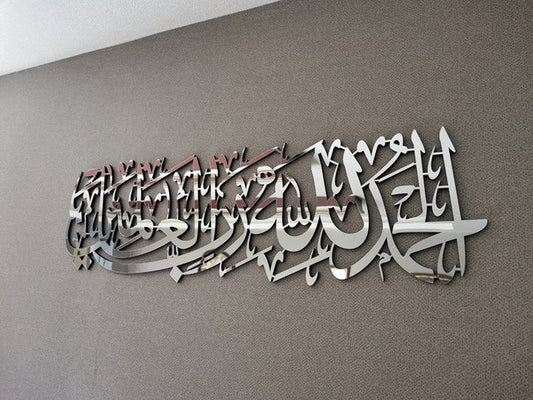 الحمد لله رب العلمين